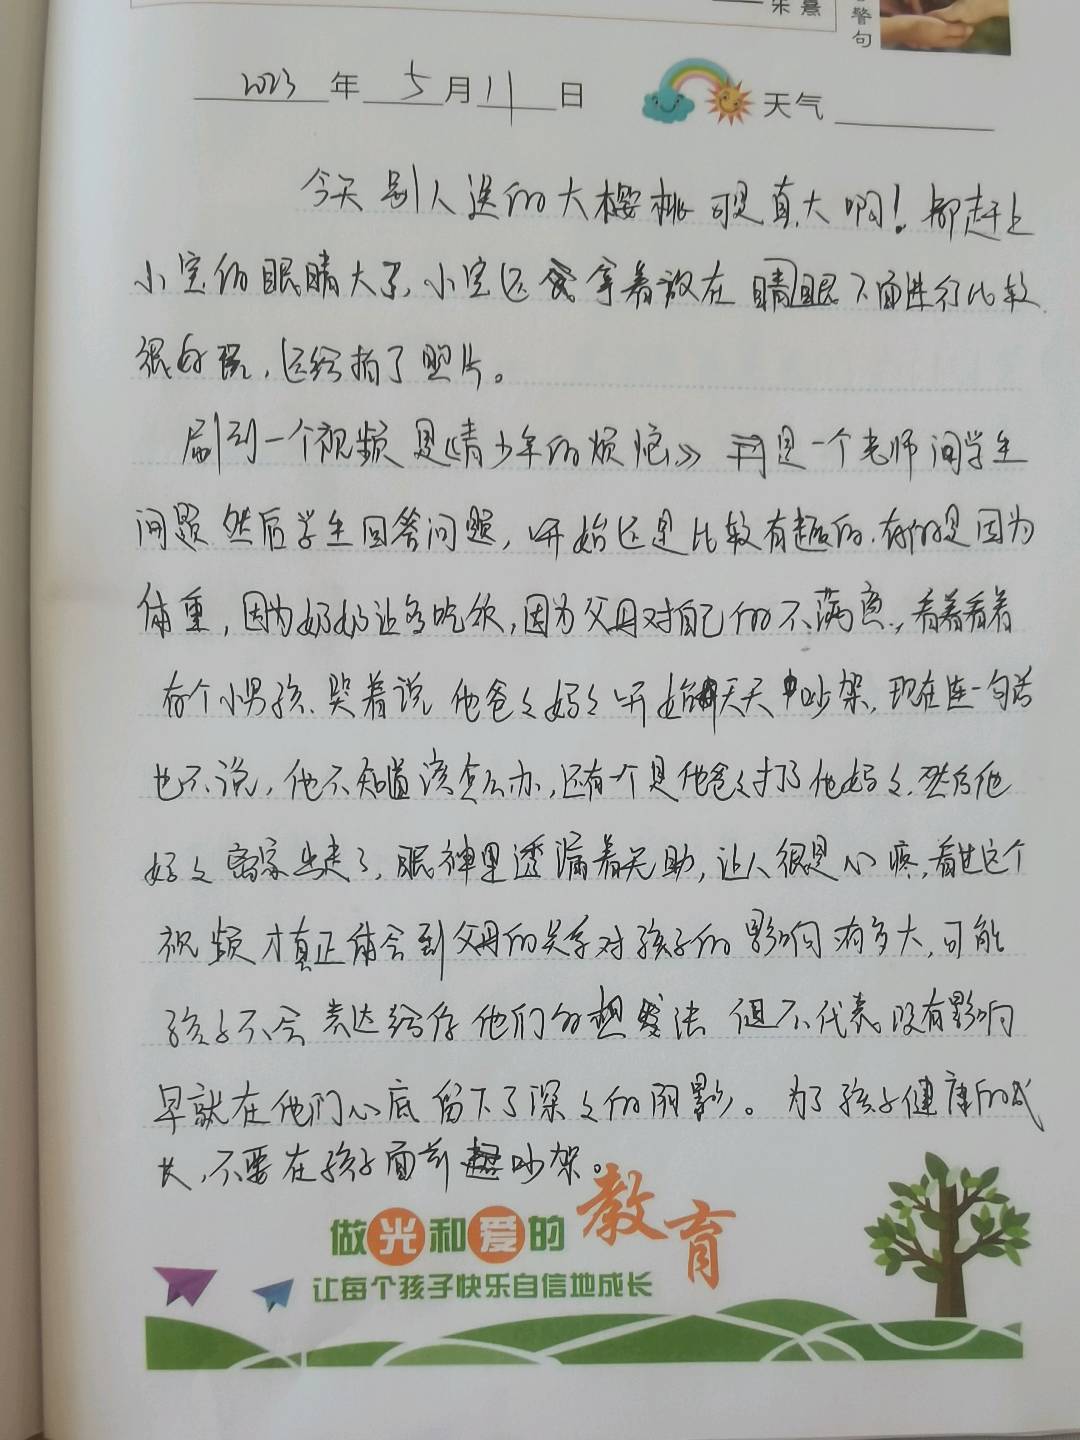 朱熹
警句
2023年5月11日 天气
今天别人送的大樱桃可是真大啊！都赶上
小宝的眼睛大了，小宝还拿着放在睛眼下面进行比较
很好玩，还给拍了照片。
刷到一个视频是《青少年的烦恼》是一个老师问学生
问题然后学生回答问题，开始还是比较有趣的，有的是因为
体重，因为奶奶让多吃饭，因为父母对自己的不满意，看着看着
有个小男孩，哭着说他爸爸妈妈开始天天吵架，现在连一句话
也不说，他不知道该怎么办，还有一个是他爸爸打了他妈妈，然后他
妈妈离家出走了，眼神里透漏着无助，让人很是心疼，看过这个
视频才真正体会到父母的关系对孩子的影响有多大，可能
孩子不会表达给你他们的想法 但不代表没有影响
早就在他们心底留下了深深的阴影。为了孩子健康的成
长，不要在孩子面前吵架。
做光和爱的教育
让每个孩子快乐自信地成长